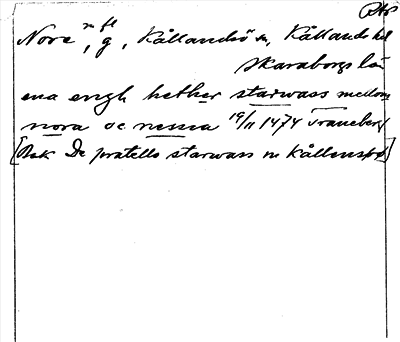 Nora n fl, g, Kållandsö sn, Kållands hd
Skaraborgs län
ena engh hether starwass mellom
nora oc nessea 19/11 1474 Traneberg
[Bsk De pratello starwass in Kållensø]